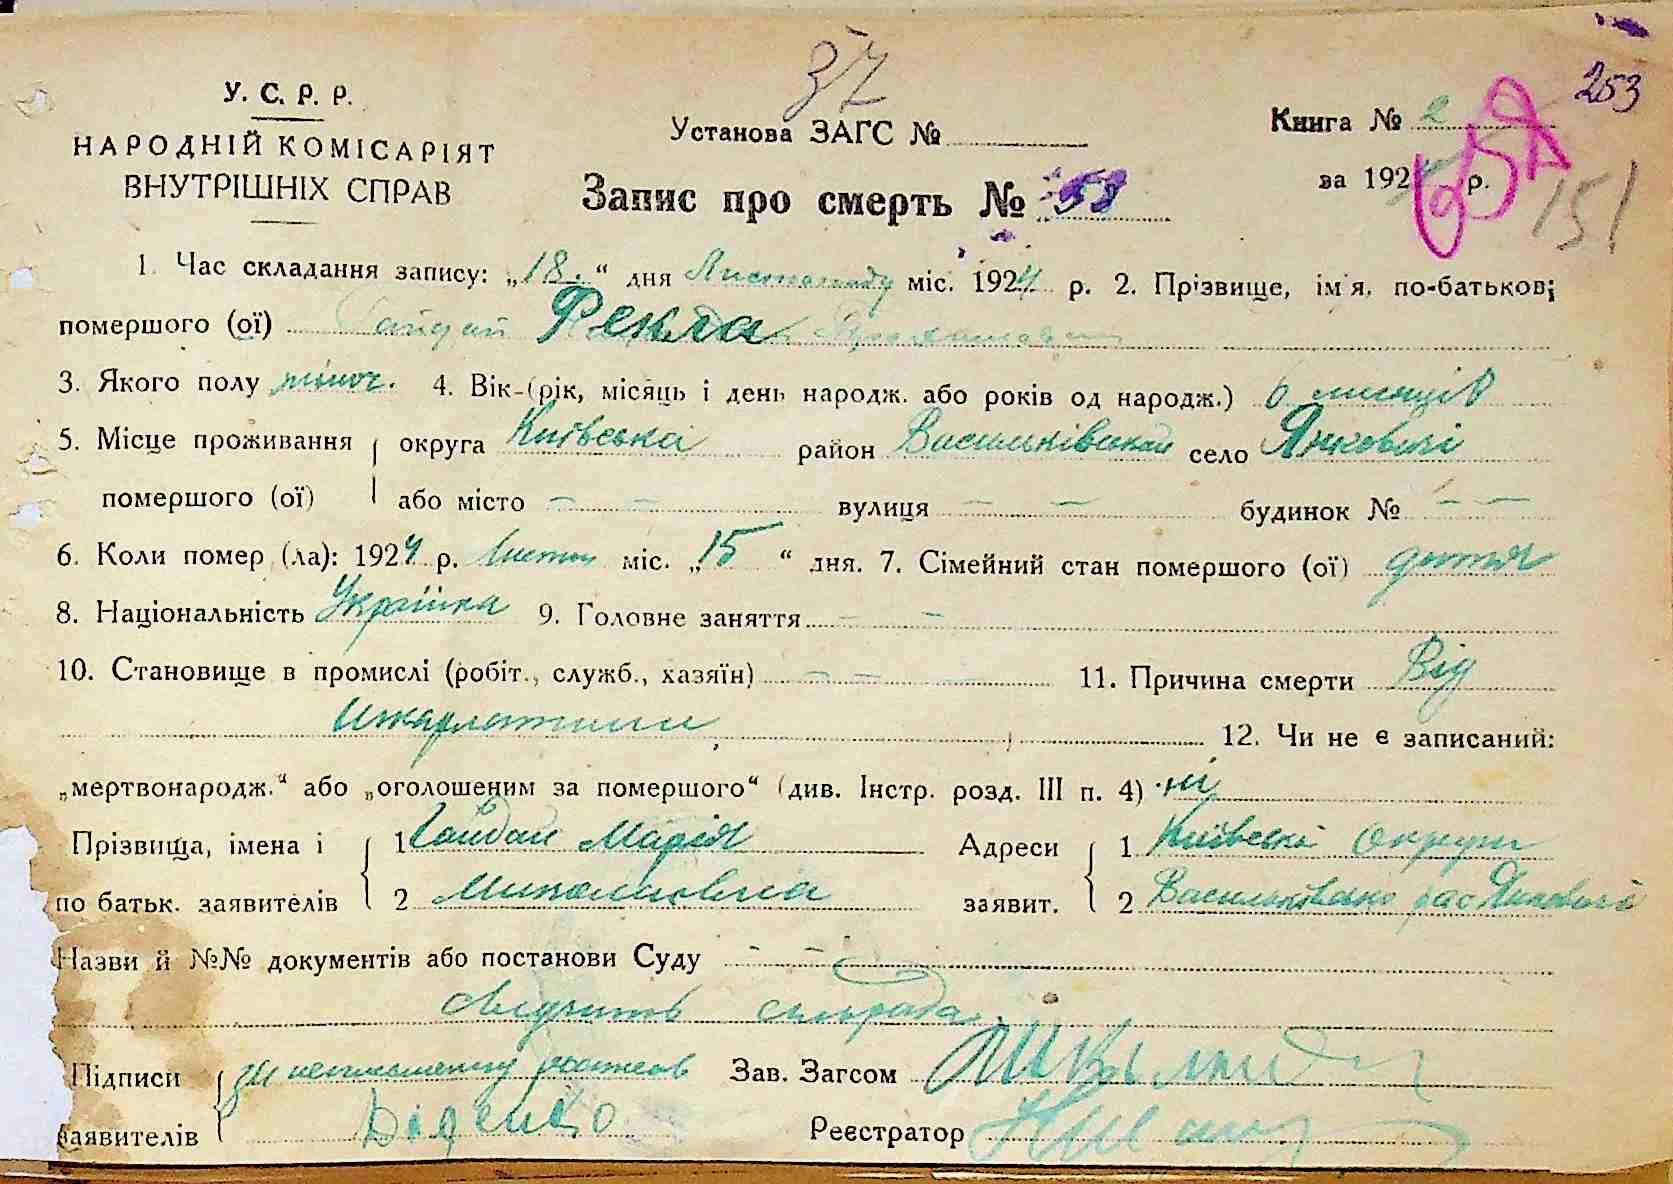 253
37
У. С. Р. Р.
НАРОДНІЙ КОМІСАРІЯТ
ВНУТРІШНІХ СПРАВ
Установа ЗАГС №
Запис про смерть № 58
Книга № 2
за 192 р.
151
1. Час складання запису: „18.“ дня Листопаду міс. 1924 р. 2. Прізвище, ім'я, по-батькові
помершого (ої) Гайдай Фекла
3. Якого полу жіноч. 4. Вік-(рік, місяць і день народж. або років од народж.) 6 місяців
5. Місце проживання округа Київська район Васильківський село Янковичі
помершого (ої) або місто — — вулиця — — будинок № — —
6. Коли помер (ла): 1924 р. Листоп міс. „15“ дня. 7. Сімейний стан помершого (ої) дитя
8. Національність Українка 9. Головне заняття — —
10. Становище в промислі (робіт., служб., хазяїн) — — — 11. Причина смерти Від
шкарлатини
12. Чи не є записаний:
„мертвонародж.“ або „оголошеним за помершого“ (див. Інстр. розд. III п. 4) ні
Прізвища, імена і 1 Гайдай Марія Адреси 1 Київської Округи
по батьк. заявителів 2 Миколаївна заявит. 2 Васильківського рай Янковичі
Назви й №№ документів або постанови Суду — —
свідчить сільрада
Підписи за неписьменну Зав. Загсом
заявителів Діденко Реєстратор